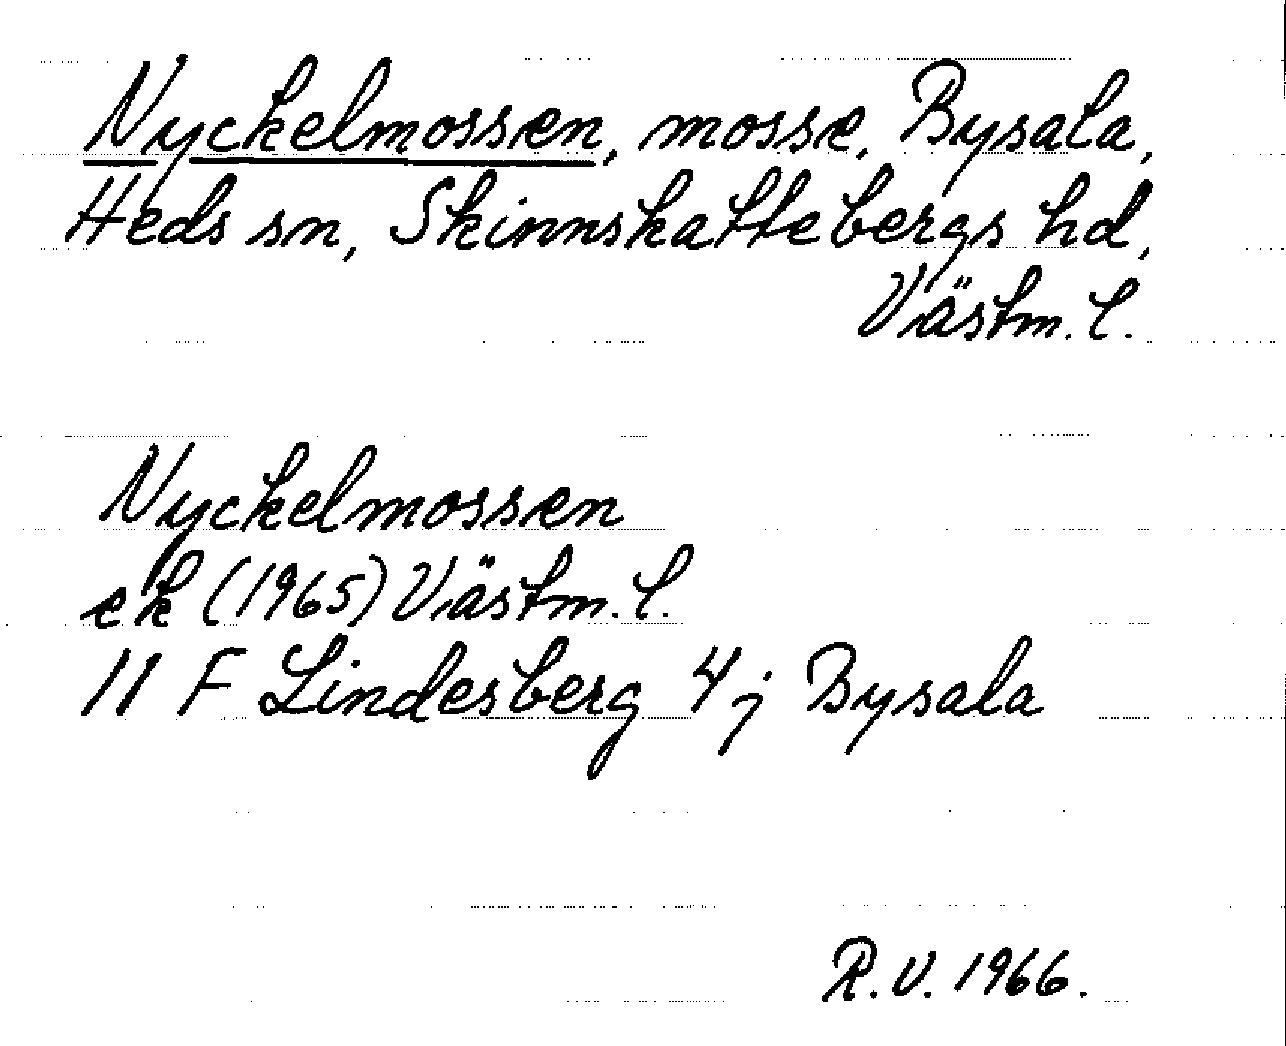 Nyckelmossen, mosse, Bysala,
Heds sn, Skinnskattebergs hd,
Västm. l.
Nyckelmossen
ek (1965) Västm. l.
11 F Lindesberg 4 j Bysala
R. V. 1966.